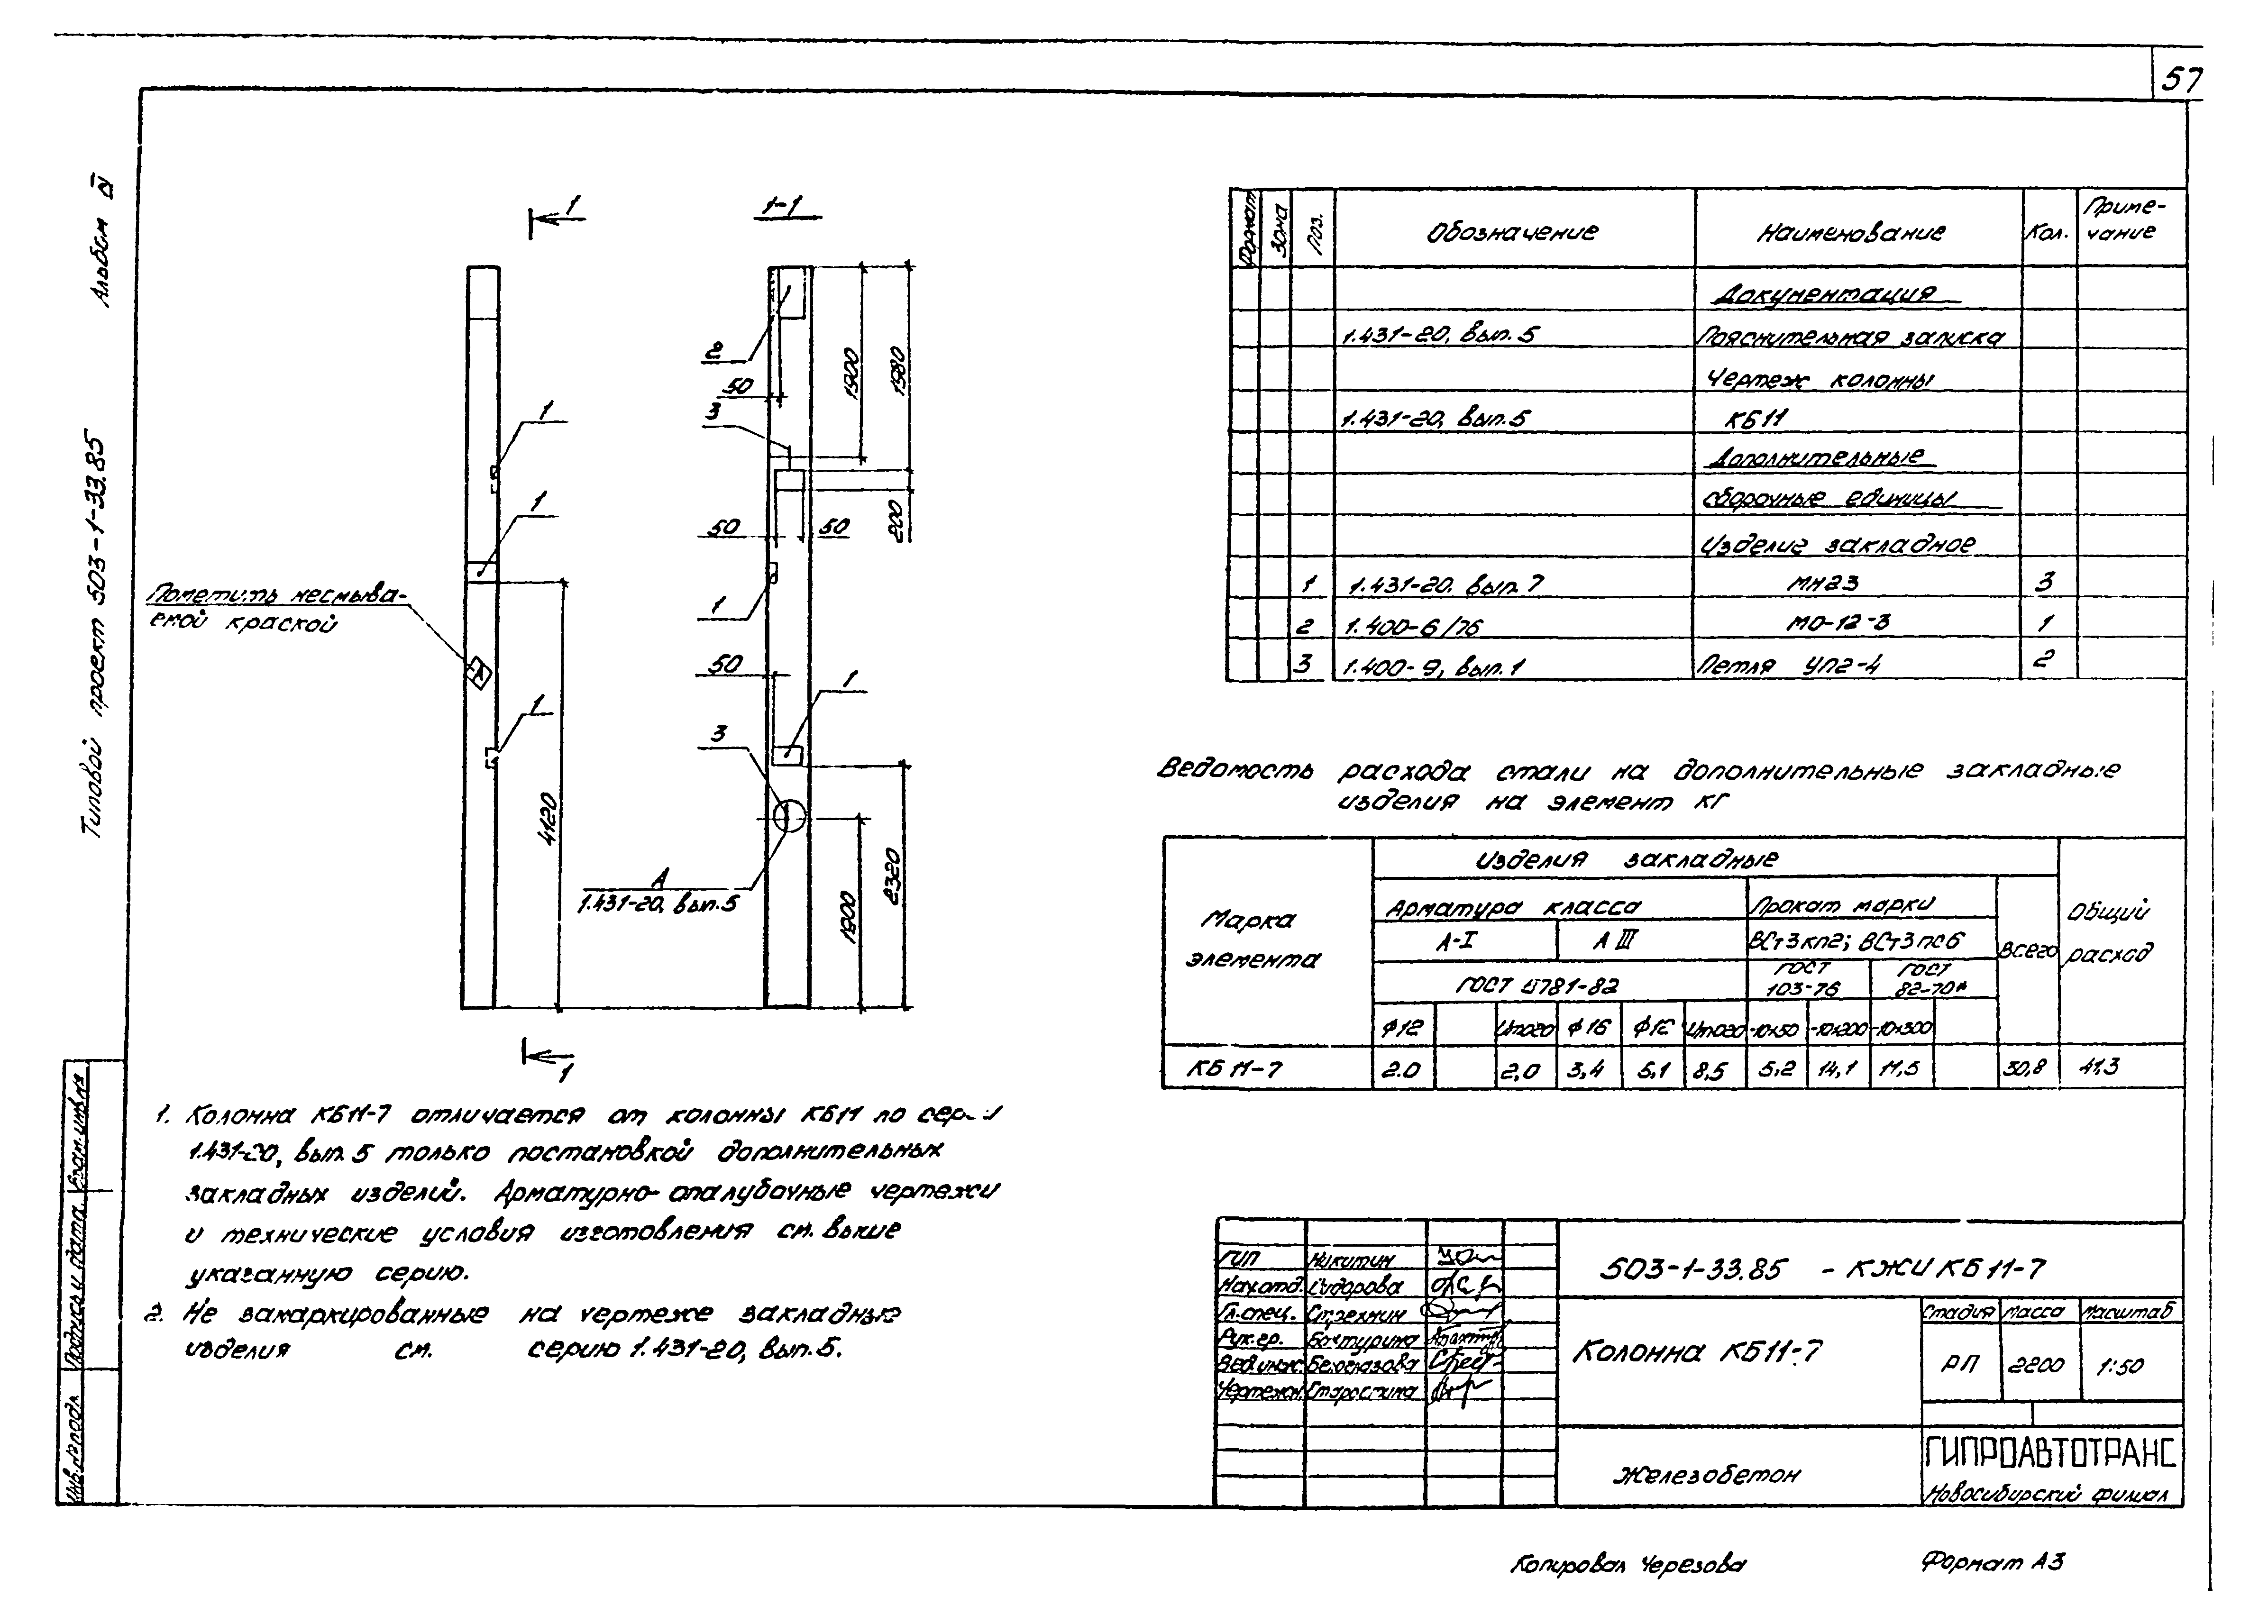 57
Альбом IV
Типовой проект 503-1-33.85
1
1-1
2
50
3
1900
1980
1
1
50
50
200
1
Пометить несмыва-
емой краской
50
1
1
3
4120
А
1.431-20, вып.5
1900
2320
1
1. Колонна КБ11-7 отличается от колонны КБ11 по
1.431-20, вып. 5 только постановкой дополнительных
закладных изделий. Арматурно-опалубочные чертежи
и технические условия изготовления см. выше
указанную серию.
2. Не замаркированные на чертеже закладные
изделия см. серию 1.431-20, вып.5.
Формат Зона Поз. Обозначение Наименование Кол. Приме-
чание
Документация
1.431-20, вып.5 Пояснительная записка
Чертеж колонны
1.431-20, вып.5 КБ11
Дополнительные
сборочные единицы
Изделие закладное
1 1.431-20. вып. 7 МН23 3
2 1.400-6/76 МО-12-3 1
3 1.400-9, вып.1 Петля УП2-4 2
Ведомость расхода стали на дополнительные закладные
изделия на элемент кг
Марка
элемента
Изделия закладные
Общий
расход
Арматура класса Прокат марки
Всего
А-I А III ВСт3кп2; ВСт3пс6
ГОСТ 5781-82 ГОСТ
103-76 ГОСТ
82-70*
ф12 Итого ф16 ф12 Итого -10х50 -10х200 -10х300
КБ 11-7 2.0 2,0 3,4 5,1 8,5 5,2 14,1 11,5 30,8 41,3
ГИП Никитин
Нач.отд. Сидорова
Гл.спец. Стрехнин
Рук.гр. Бахтурина
Вед.инж. Белоглазова
Чертежн. Старостина
503-1-33.85 - КЖИ КБ11-7
Колонна КБ11-7
Стадия Масса Масштаб
РП 2200 1:50
Железобетон
ГИПРОАВТОТРАНС
Новосибирский филиал
Взам.инв.№
Подпись и дата
Инв.№подл.
Копировал Черезова
Формат А3